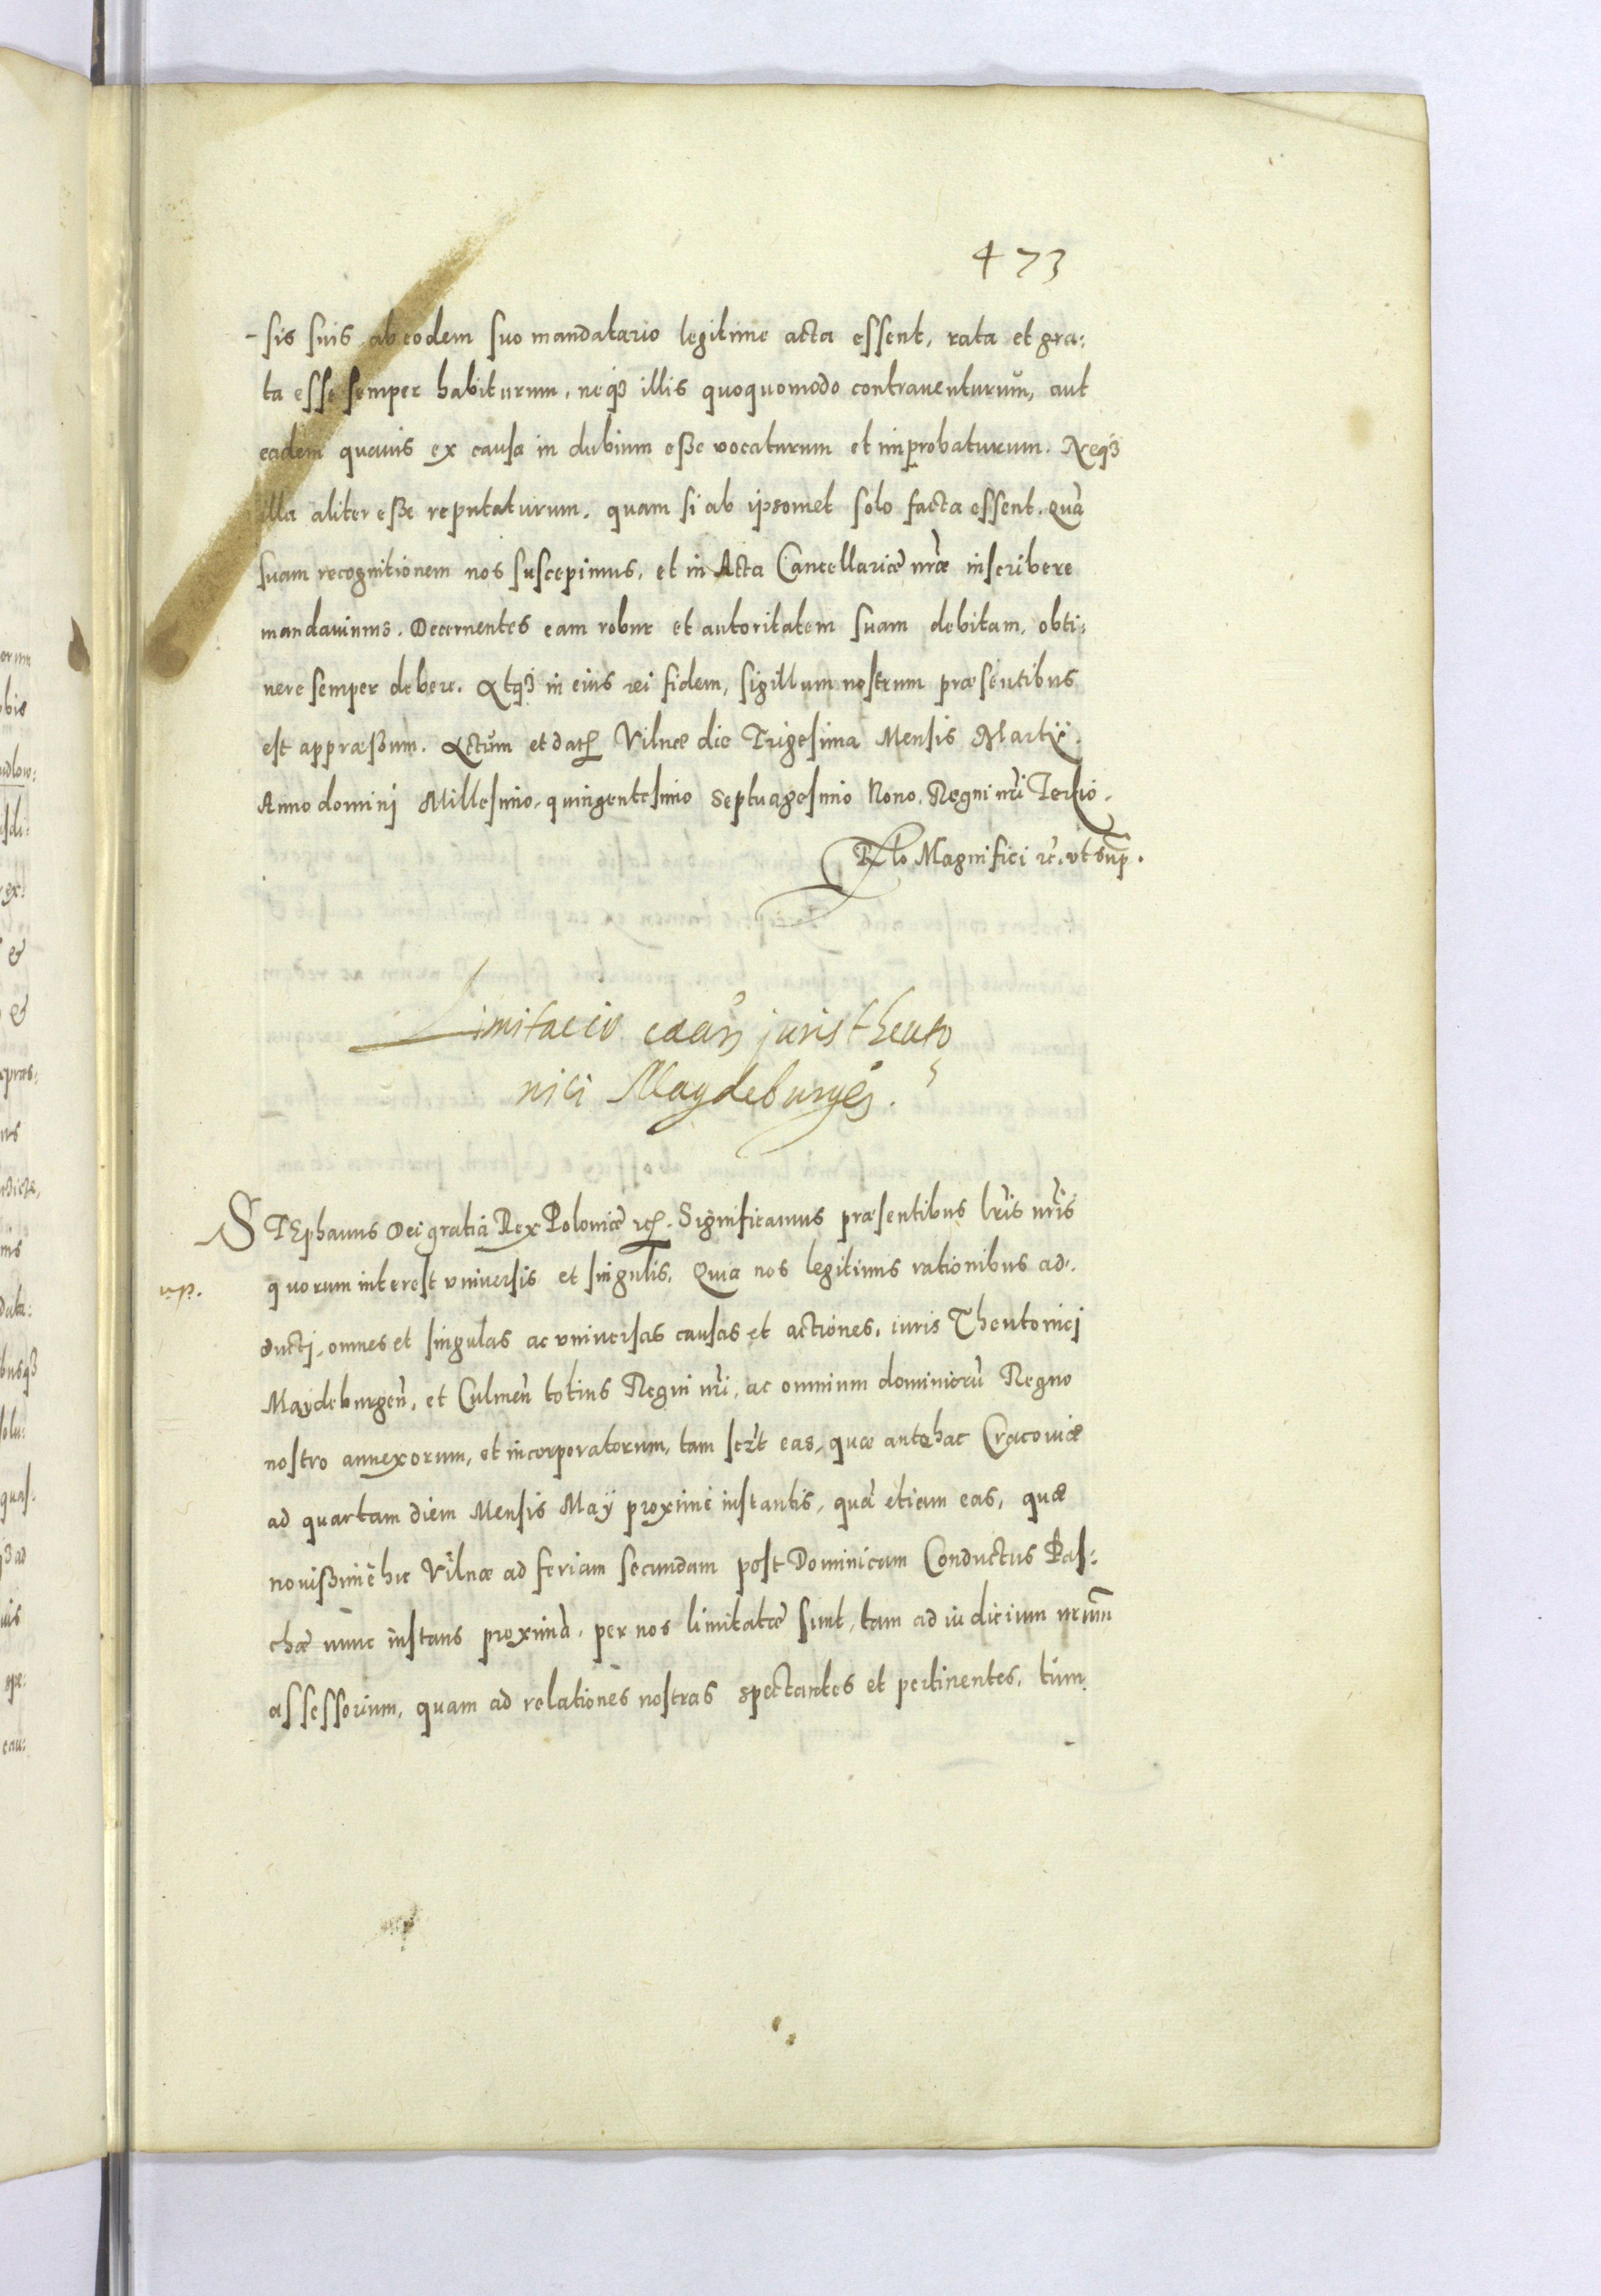 473
-sis suis ab eodem suo mandatario legitime acta essent, rata et gra:
ta esse semper habiturum, neqȝ illis quoquomodo contrauenturum̃, aut
eadem quauis ex causa in dubium eße vocaturum et improbaturum. Neqȝ
illa aliter eße reputaturum, quam si ab ipsomet solo facta essent. Quã
suam recognitionem nos suscepimus, et in Acta Cancellariæ nr̃æ inscribere
mandauimus. Decernentes eam robur et autoritatem suam debitam, obti:
nere semper debere. Atqȝ in eius rei fidem, sigillum nostrum præsentibus
est appræßum. Actum et datꝭ Vilnæ die Trigesima Mensis Martij.
Anno dominj Millesimo quingentesimo Septuagesimo Nono. Regni nr̃i Tertio.
Rlo Magnifici ꝛc̃. vt sup̃.
Limitacio caarꝭ juris theuto
nici Magdeburgeñ.
STEphanus Dei gratia Rex Poloniæ ꝛcꝭ. Significamus præsentibus lr̃is nr̃is
quorum interest vniuersis et singulis, Quia nos legitimis rationibus ad.
ductj, omnes et singulas ac vniuersas causas et actiones, iuris Theutonicj
Maydeburgeñ, et Culmeñ totius Regni nr̃i, ac omnium dominiorũ Regno
nostro annexorum, et incorporatorum, tam scz̃t eas, quæ antehac Cracouiæ
ad quartam diem Mensis Maÿ proximè instantis, quã etiam eas, quæ
nouißimè hic Vilnæ ad feriam secundam post Dominicam Conductus Pas:
chæ nunc instans proximã, per nos limitatæ sunt, tam ad iudicium nrũm
assessorium, quam ad relationes nostras spectantes et pertinentes, tum